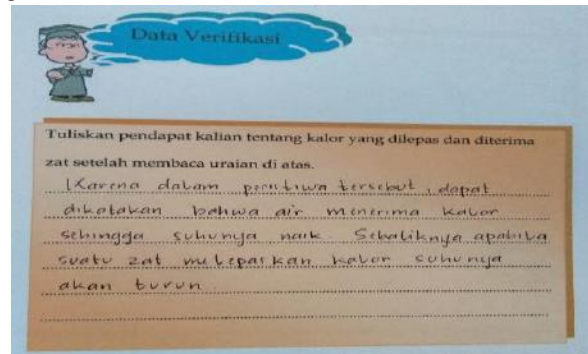 Data Verifikasi
Tuliskan pendapat kalian tentang kalor yang dilepas dan diterima
zat setelah membaca uraian di atas.
Karena dalam peristiwa tersebut, dapat
dikatakan bahwa air menerima kalor
sehingga suhunya naik. Sebaliknya apabila
suatu zat melepaskan kalor suhunya
akan turun